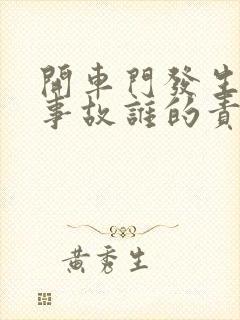 開車門發生
事故誰的責
黃秀生